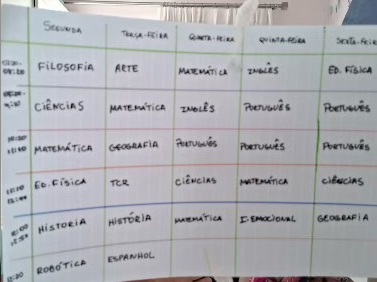 SEGUNDA TERÇA-FEIRA QUARTA-FEIRA QUINTA-FEIRA SEXTA-FEIRA
FILOSOFIA ARTE MATEMÁTICA INGLÊS ED. FÍSICA
CIÊNCIAS MATEMÁTICA INGLÊS PORTUGUÊS PORTUGUÊS
MATEMÁTICA GEOGRAFIA PORTUGUÊS PORTUGUÊS PORTUGUÊS
ED. FÍSICA TCR CIÊNCIAS MATEMÁTICA CIÊNCIAS
HISTORIA HISTÓRIA MATEMÁTICA I. EMOCIONAL GEOGRAFIA
ROBÓTICA ESPANHOL